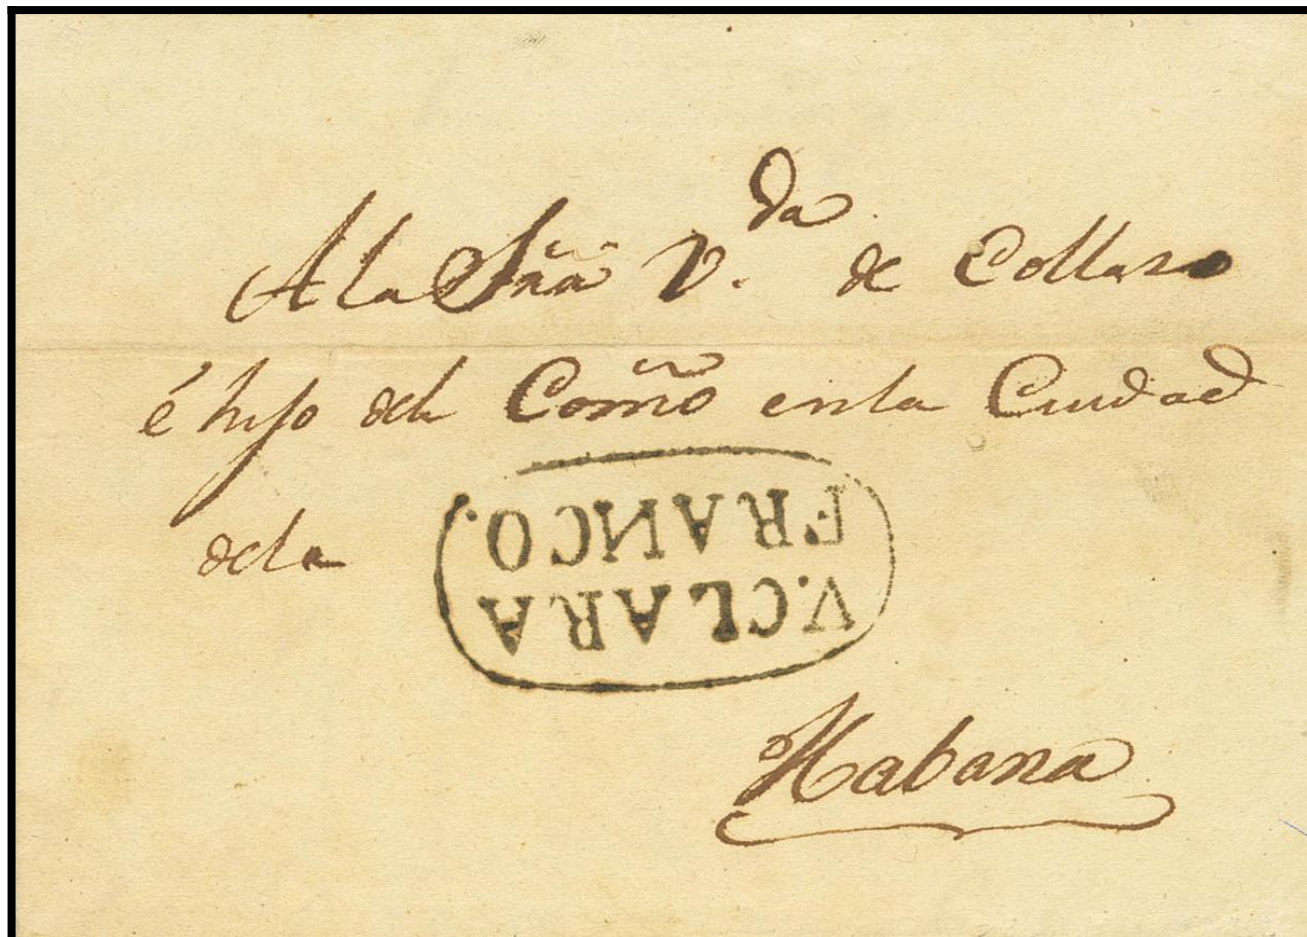 A la Sñã V.da de Collaso
é hijo del Comõ en la Ciudad
de la
V.CLARA
FRANCO.
Habana